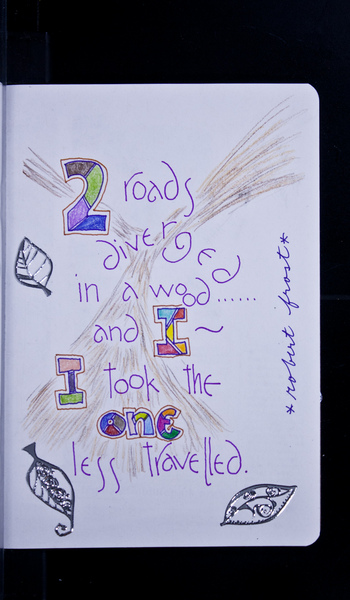 2 roads
diverged
in a wood......
and I ~
I took the
one
less travelled.
*robert frost*